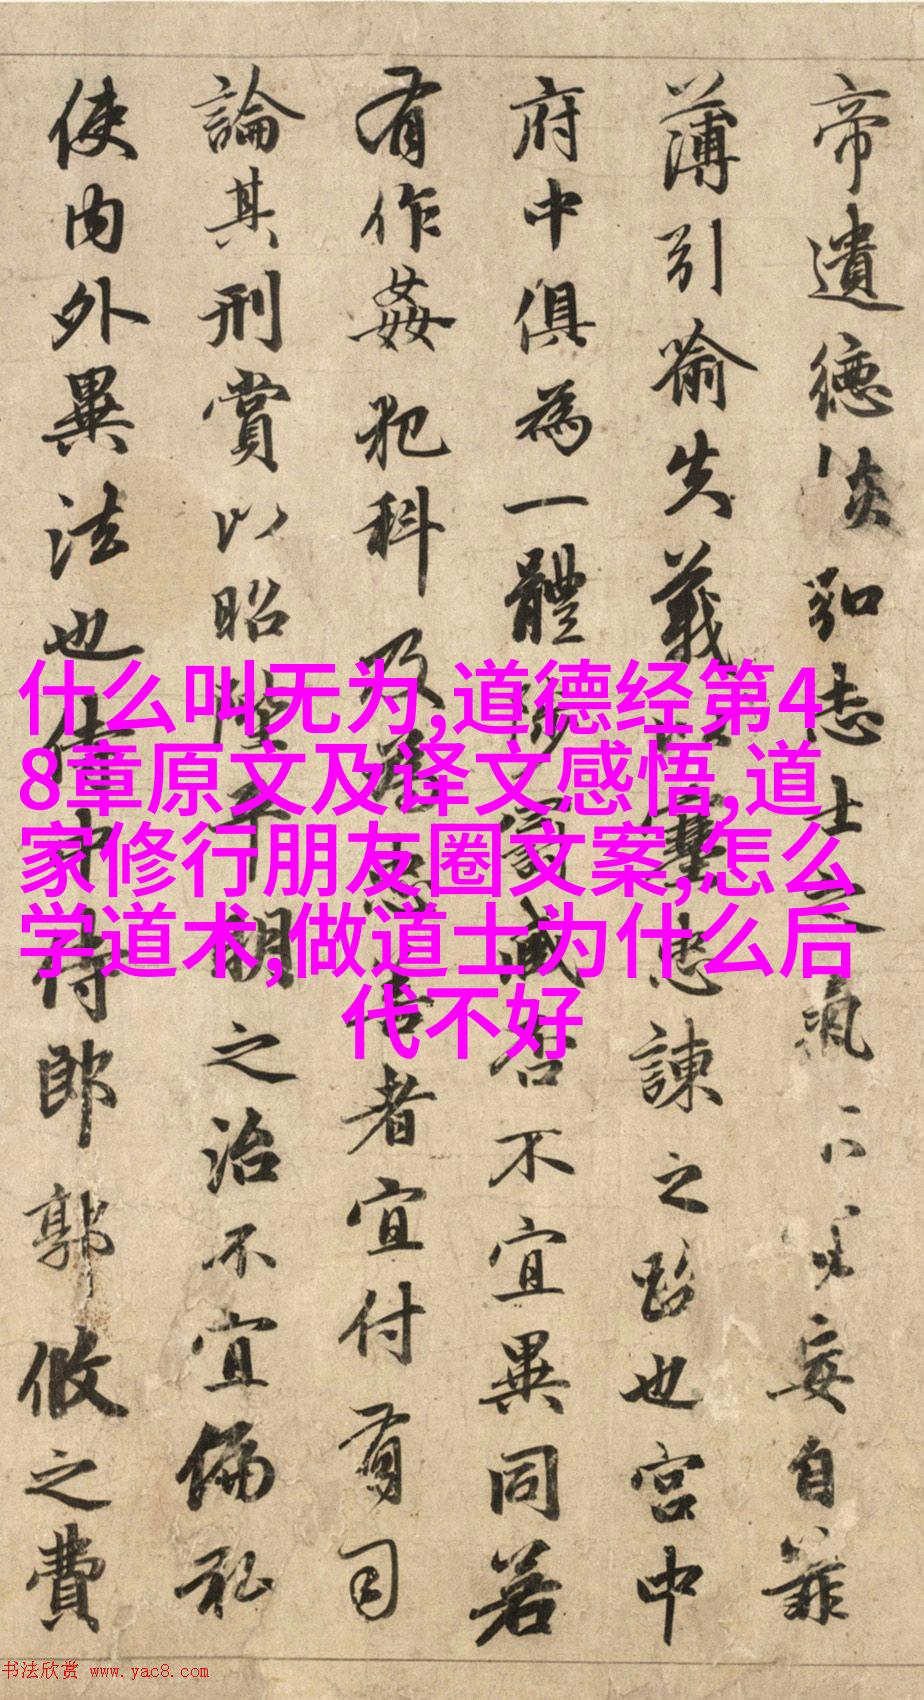 帝遺德恢弘志士之氣不妄自菲
薄引喻失義以塞忠諫之路也宮中
府中俱為一體陟罰臧否不宜異同若
有作姦犯科及為忠善者宜付有司
論其刑賞以昭陛平明之治不宜偏私
使內外異法也侍中侍郎郭攸之費
什么叫无为,道德经第4
8章原文及译文感悟,道
家修行朋友圈文案,怎么
学道术,做道士为什么后
代不好
书法欣赏 www.yac8.com